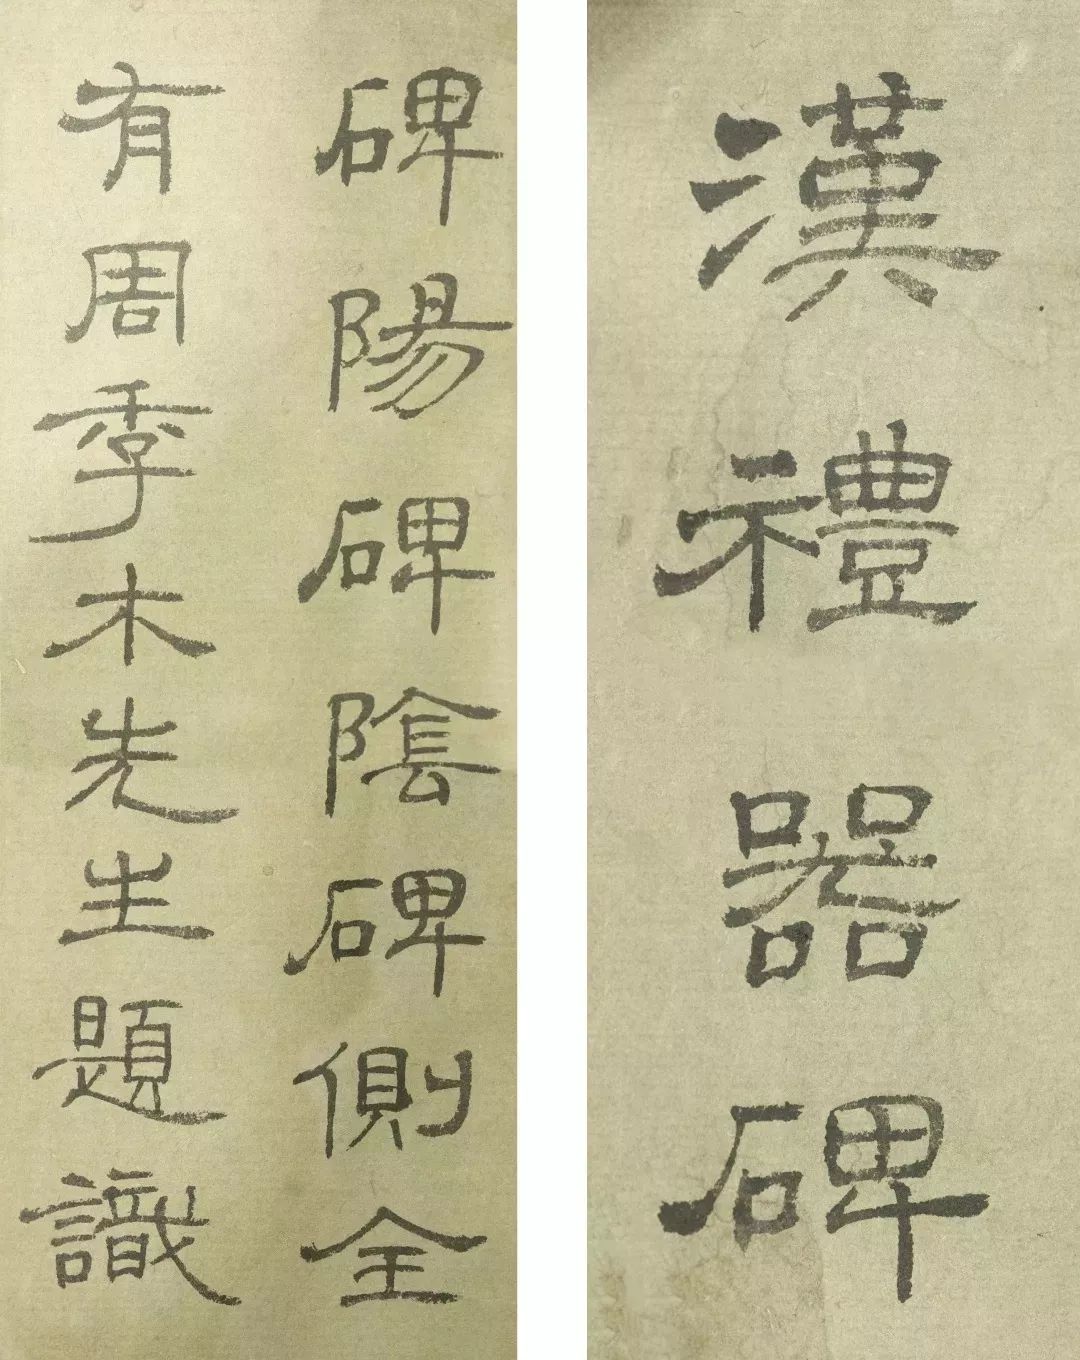 漢禮器碑
碑陽碑陰碑側全
有周季木先生題識